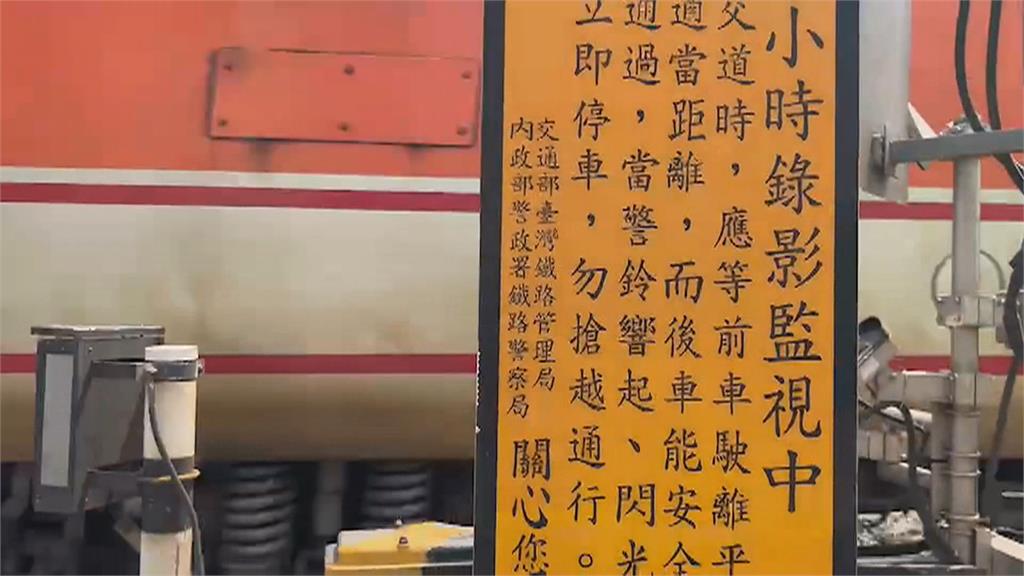 小時錄影監視中
交道時，應等前車駛離平
適當距離，而後車能安全
通過，當警鈴響起、閃光
立即停車，勿搶越通行。
交通部臺灣鐵路管理局
內政部警政署鐵路警察局
關心您